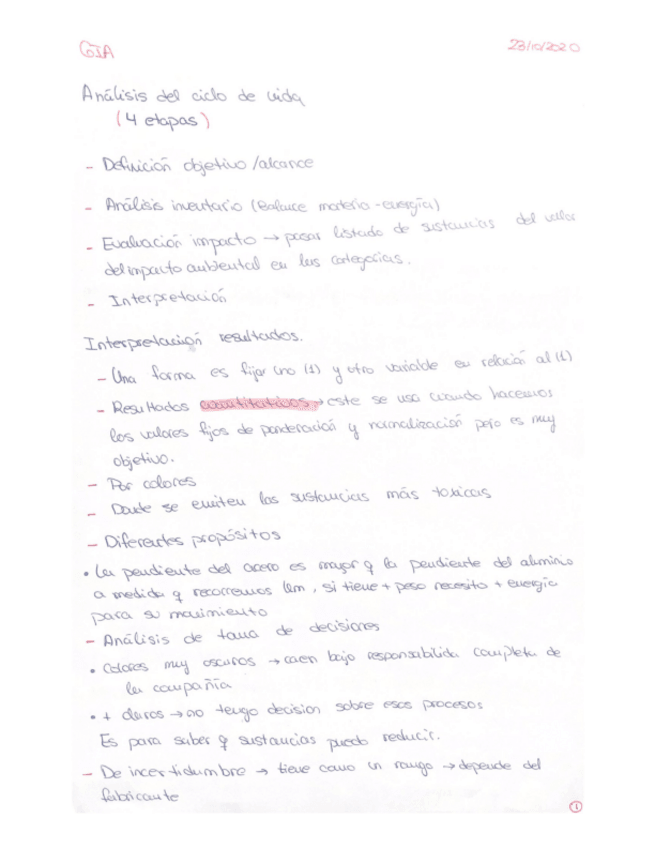 GIA
23/10/2020
Análisis del ciclo de vida
(4 etapas)
- Definición objetivo/alcance
- Análisis inventario (Balance materia-energía)
- Evaluación impacto → pasar listado de sustancias del valor
del impacto ambiental en las categorías.
- Interpretación
Interpretación resultados.
- Una forma es fijar uno (1) y otro variable en relación al (1)
- Resultados cuantitativos → este se usa cuando hacemos
los valores fijos de ponderación y normalización pero es muy
objetivo.
- Por colores
- Donde se emiten las sustancias más toxicas
- Diferentes propósitos
• La pendiente del acero es mayor q la pendiente del aluminio
a medida q recorremos km, si tiene + peso necesito + energía
para su movimiento
- Análisis de toma de decisiones
• Colores muy oscuros → caen bajo responsabilida completa de
la compañía
• + claros → no tengo decision sobre esos procesos
Es para saber q sustancias puedo reducir.
- De incertidumbre → tiene como un rango → depende del
fabricante
1